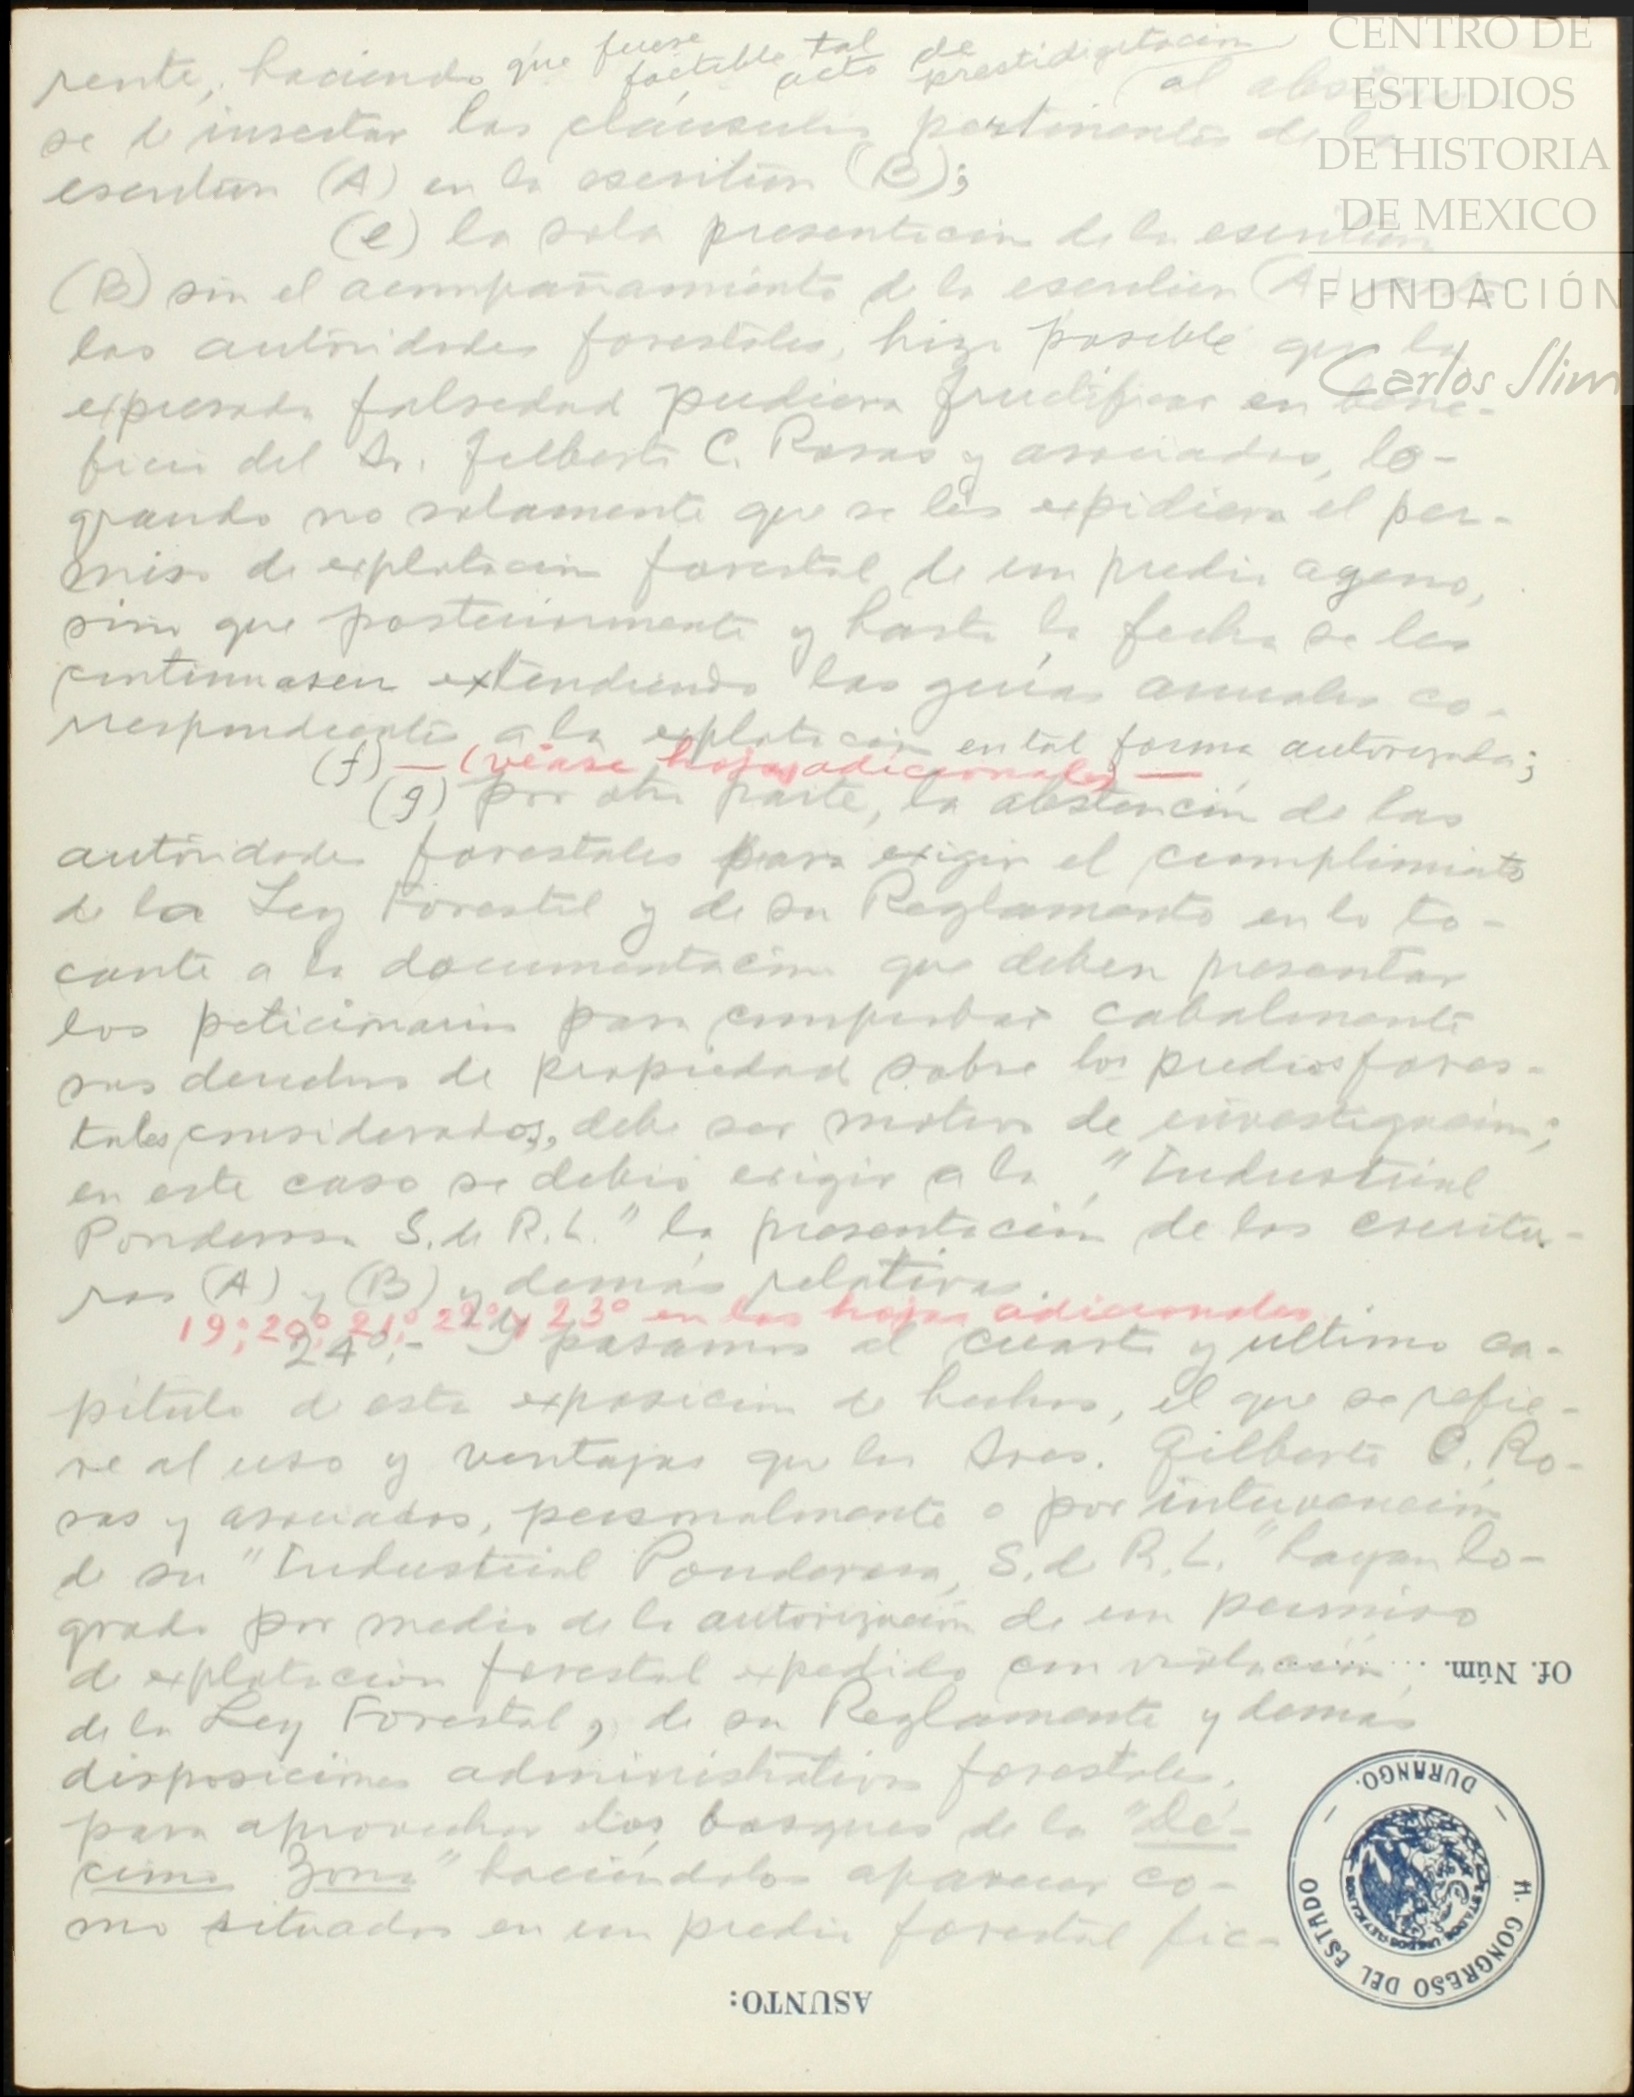 CENTRO DE
ESTUDIOS
DE HISTORIA
DE MEXICO
FUNDACIÓN
Carlos Slim
rente, haciendo que fuese factible tal acto de prestidigitación al
se d insertar las cláusulas pertinentes de la
escritura (A) en la escritura (B);
(e) la sola presentación de la escritura
(B) sin el acompañamiento de la escritura (A) ante
las autoridades forestales, hizo posible que la
expresada falsedad pudiera fructificar en bene-
ficio del Sr. Gilberto C. Rosas y asociados, lo-
grando no solamente que se les expidiera el per-
miso de explotación forestal de un predio ageno,
sino que posteriormente y hasta la fecha se les
continuasen extendiendo las guías anuales co-
rrespondientes a la explotación en tal forma autorizada;
(f) — (véase hojas adicionales) —
(g) por otra parte, la abstención de las
autoridades forestales para exigir el cumplimiento
de la Ley Forestal y de su Reglamento en lo to-
cante a la documentación que deben presentar
los peticionarios para comprobar cabalmente
sus derechos de propiedad sobre los predios fores-
tales considerados, debe ser motivo de investigación;
en este caso se debió exigir a la "Industrial
Ponderosa S. de R. L." la presentación de las escritu-
ras (A) y (B) y demás relativas.
19°; 20°; 21°; 22° y 23° en las hojas adicionales
24°.- Y pasamos al cuarto y ultimo ca-
pitulo d esta exposicion de hechos, el que se refie-
re al uso y ventajas que los Sres. Gilberto C. Ro-
sas y asociados, personalmente o por intervención
de su "Industrial Ponderosa, S. d R. L." hayan lo-
grado por medio de la autorización de un permiso
d explotación forestal expedido con violación
de la Ley Forestal, de su Reglamento y demás
disposiciones administrativas forestales,
para aprovechar los bosques de la "Dé-
cima Zona" haciéndolos aparecer co-
mo situados en un predio forestal fic-
Of. Núm.
H. CONGRESO DEL ESTADO
DURANGO.
ESTADOS UNIDOS MEXICANOS
ASUNTO: